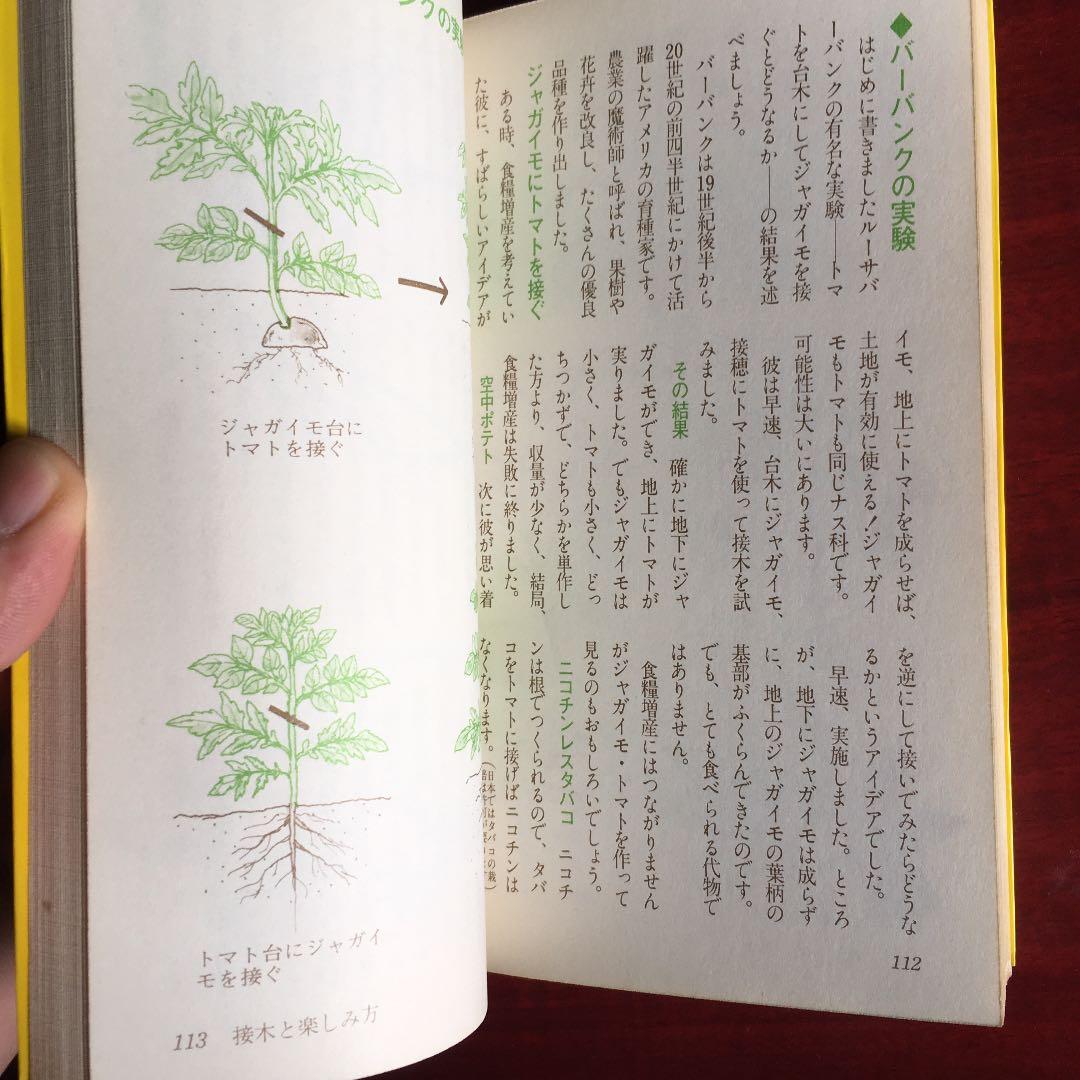 ◆バーバンクの実験
はじめに書きましたルーサバ
ーバンクの有名な実験――トマ
トを台木にしてジャガイモを接
ぐとどうなるか――の結果を述
べましょう。
バーバンクは19世紀後半から
20世紀の前四半世紀にかけて活
躍したアメリカの育種家です。
農業の魔術師と呼ばれ、果樹や
花卉を改良し、たくさんの優良
品種を作り出しました。
ジャガイモにトマトを接ぐ
ある時、食糧増産を考えてい
た彼に、すばらしいアイデアが
イモ、地上にトマトを成らせば、
土地が有効に使える！ジャガイ
モもトマトも同じナス科です。
可能性は大いにあります。
彼は早速、台木にジャガイモ、
接穂にトマトを使って接木を試
みました。
その結果 確かに地下にジャ
ガイモができ、地上にトマトが
実りました。でもジャガイモは
小さく、トマトも小さく、どっ
ちつかずで、どちらかを単作し
た方より、収量が少なく、結局、
食糧増産は失敗に終りました。
空中ポテト 次に彼が思い着
を逆にして接いでみたらどうな
るかというアイデアでした。
早速、実施しました。ところ
が、地下にジャガイモは成らず
に、地上のジャガイモの葉柄の
基部がふくらんできたのです。
でも、とても食べられる代物で
はありません。
食糧増産にはつながりません
がジャガイモ・トマトを作って
見るのもおもしろいでしょう。
ニコチンレスタバコ ニコチ
ンは根でつくられるので、タバ
コをトマトに接げばニコチンは
なくなります。（日本ではタバコの栽
112
ンクの実
ジャガイモ台に
トマトを接ぐ
トマト台にジャガイ
モを接ぐ
113 接木と楽しみ方